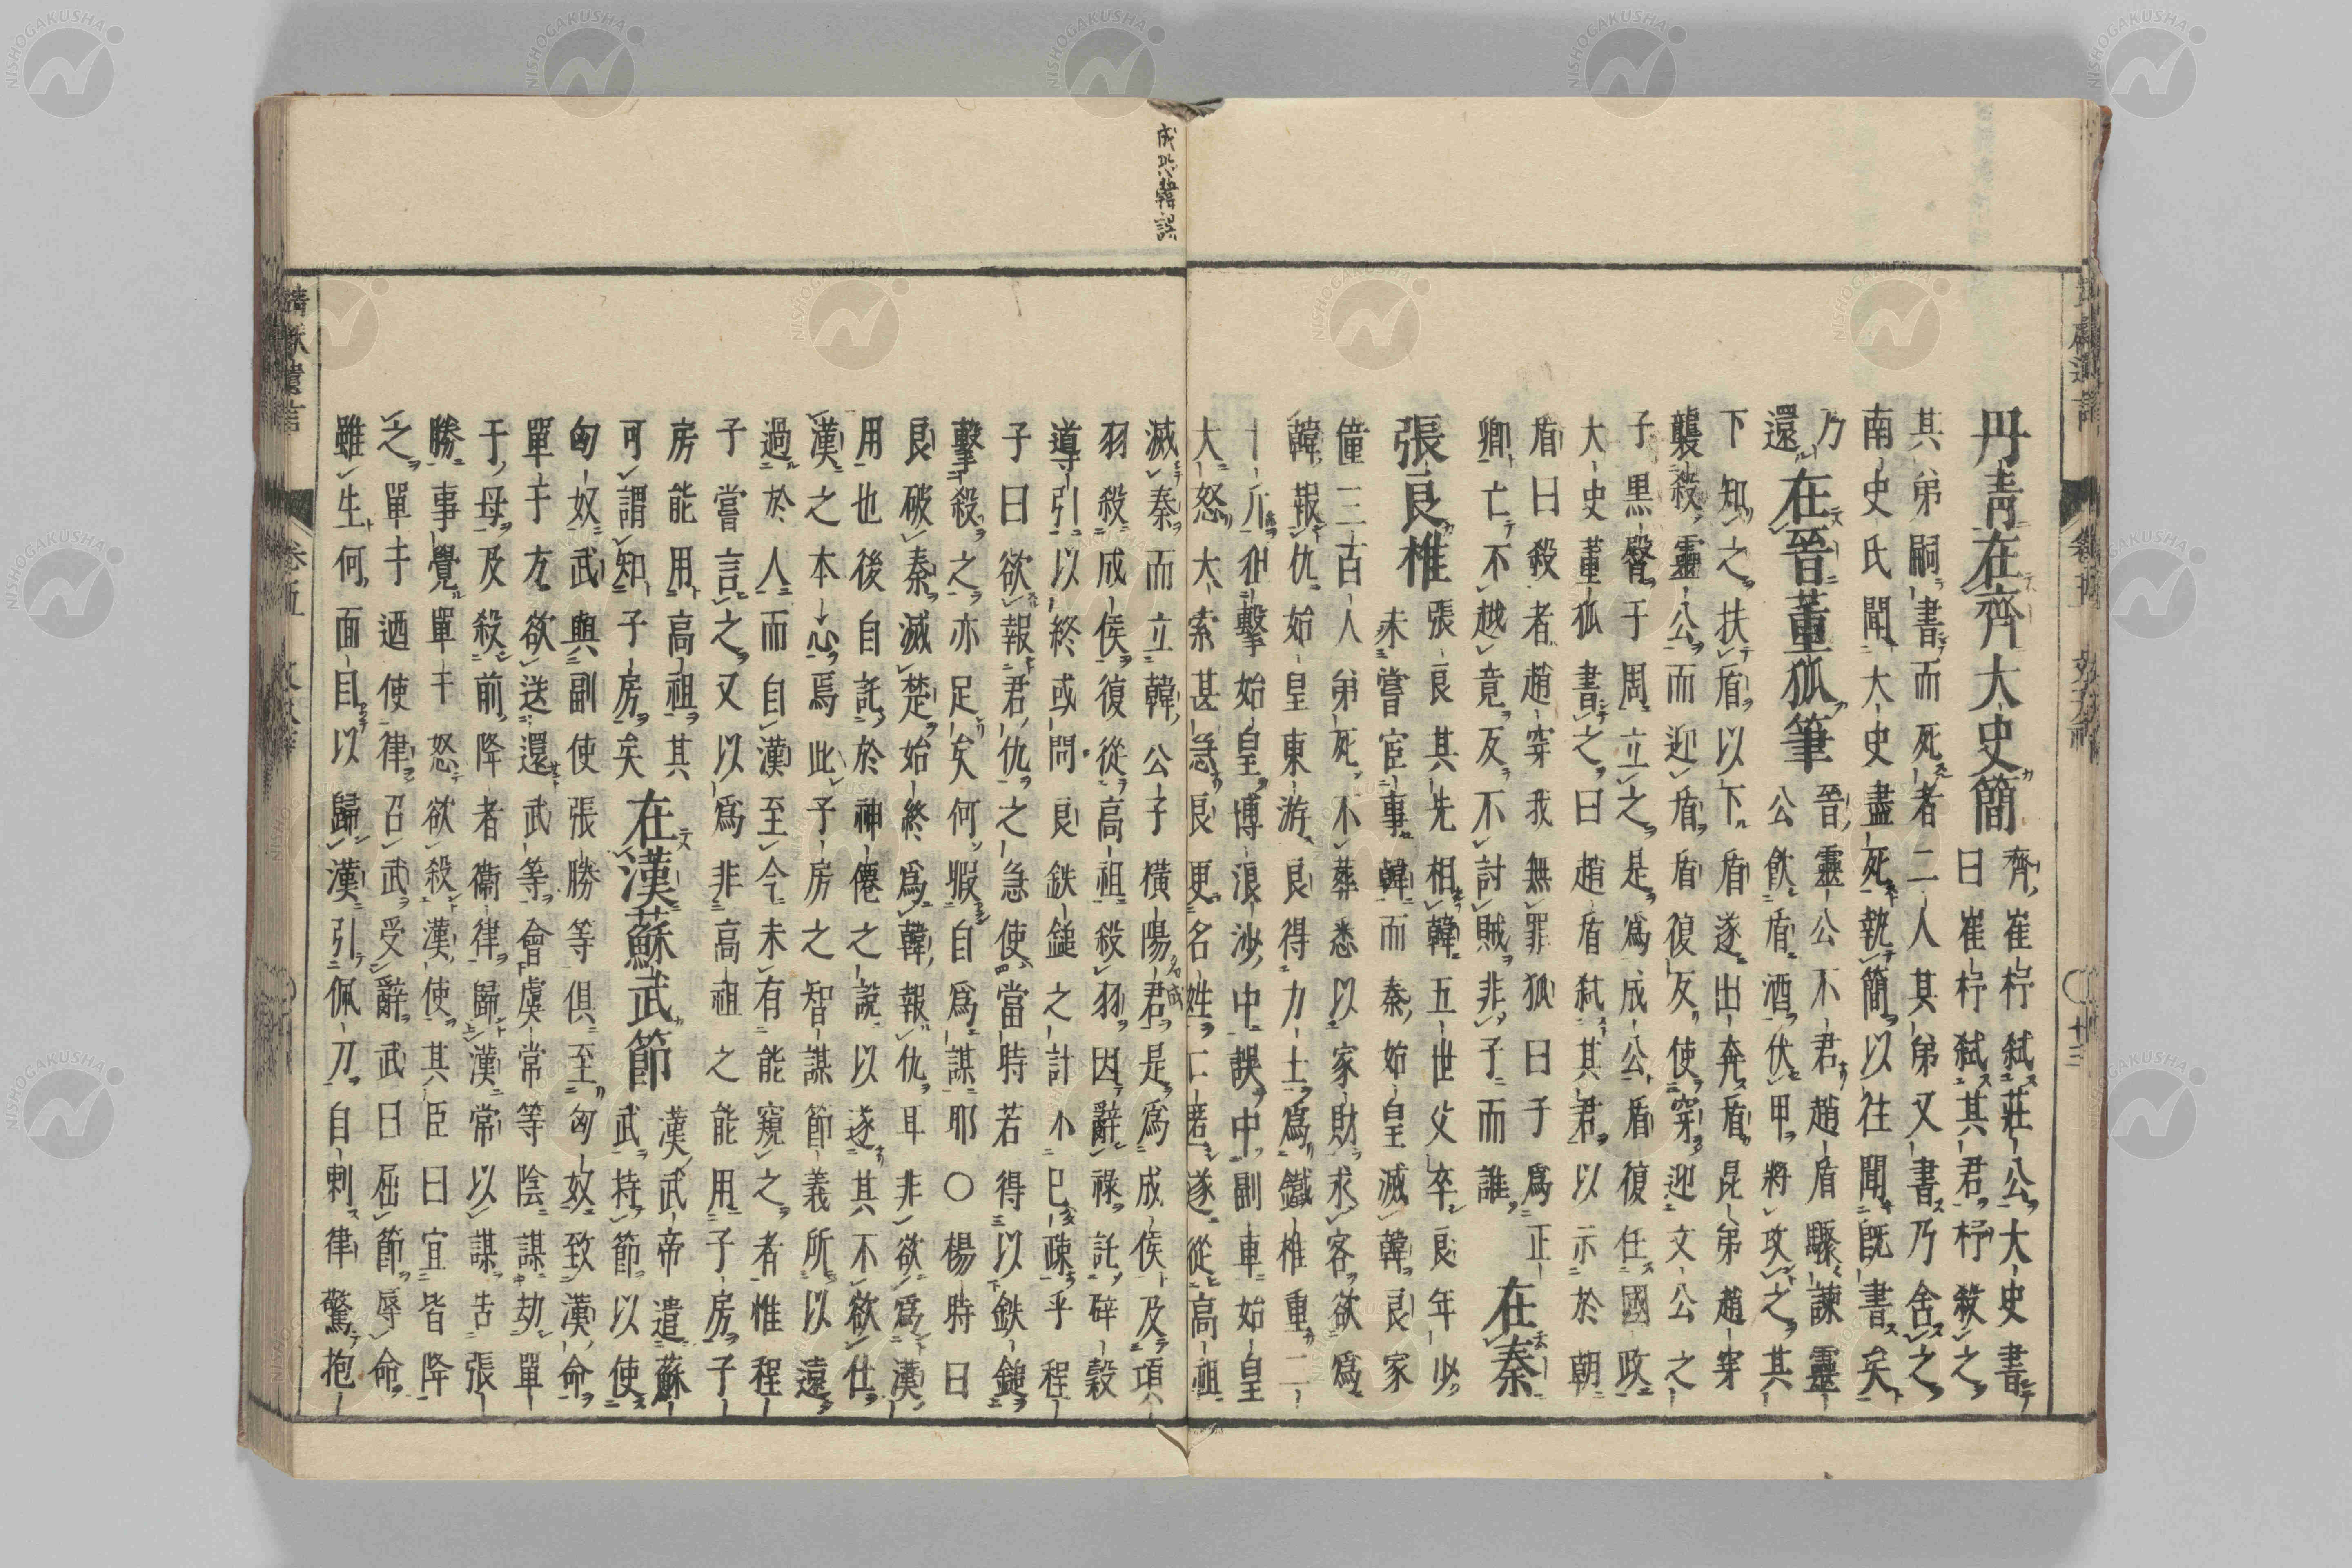 丹青在齊大史簡
齊崔杼弑莊公大史書
曰崔杼弑其君杼殺之
其弟嗣書而死者二人其弟又書乃舍之
南史氏聞大史盡死執簡以往聞既書矣
乃還
在晉董狐筆
晉靈公不君趙盾驟諫靈
公飲盾酒伏甲將攻之其
下知之扶盾以下盾遂出奔盾昆弟趙穿
襲殺靈公而迎盾盾復反使穿迎文公之
子黑臀于周立之是爲成公盾復任國政
大史董狐書之曰趙盾弑其君以示於朝
盾曰殺者趙穿我無罪狐曰子爲正
卿亡不越竟反不討賊非子而誰
在秦
張良椎
張良其先相韓五世父卒良年少
未嘗宦事韓而秦始皇滅韓良家
僮三百人弟死不葬悉以家財求客欲爲
韓報仇始皇東游良得力士爲鐵椎重二
十斤狙擊始皇博浪沙中誤中副車始皇
大怒大索甚急良更名姓亡匿遂從高祖
滅秦而立韓公子橫陽君是爲成侯及項
羽殺成侯復從高祖殺羽因辭祿託辟穀
導引以終或問良鉄鎚之計不已疎乎程
子曰欲報君仇之急使當時若得以鉄鎚
擊殺之亦足矣何暇自爲謀耶○楊時曰
良破秦滅楚始終爲韓報仇耳非欲爲漢
用也後自託於神僊之說以遂其不欲仕
漢之本心焉此子房之智謀節義所以遠
過於人而自漢至今未有能窺之者惟程
子嘗言之又以爲非高祖之能用子房子
房能用高祖其
可謂知子房矣
在漢蘇武節
漢武帝遣蘇
武持節以使
匈奴武與副使張勝等俱至匈奴致漢命
單于方欲送還武等會虞常等陰謀劫單
于母及殺前降者衛律歸漢常以謀告張
勝事覺單于怒欲殺漢使其臣曰宜皆降
之單于迺使律召武受辭武曰屈節辱命
雖生何面目以歸漢引佩刀自刺律驚抱
靖獻遺言
卷五